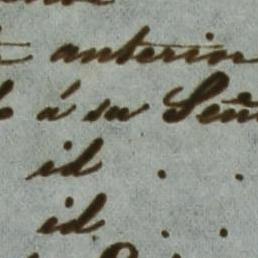 anterior
á su Señ
id . .
id . .